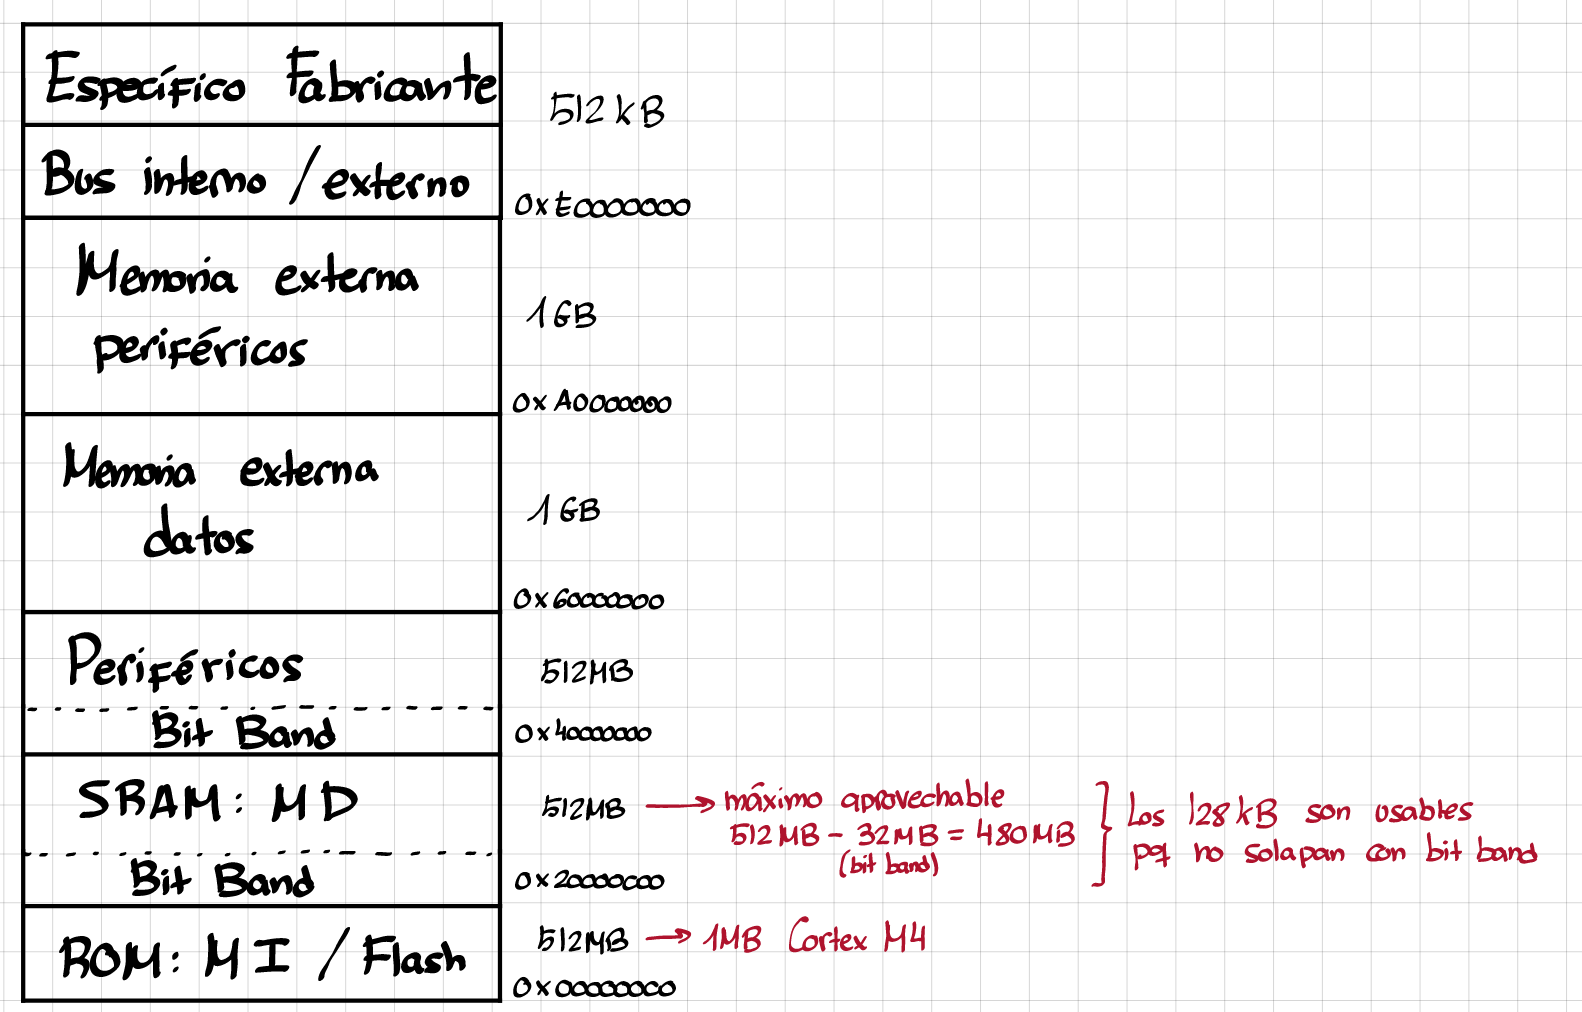 Específico Fabricante
512 kB
Bus interno / externo
0xE0000000
Memoria externa
periféricos
1GB
0xA0000000
Memoria externa
datos
1GB
0x60000000
Periféricos
512MB
Bit Band
0x40000000
SRAM: MD
512MB → máximo aprovechable
512MB - 32MB = 480MB
(bit band)
Los 128kB son usables
pq no solapan con bit band
Bit Band
0x20000000
ROM: MI / Flash
512MB → 1MB Cortex M4
0x00000000